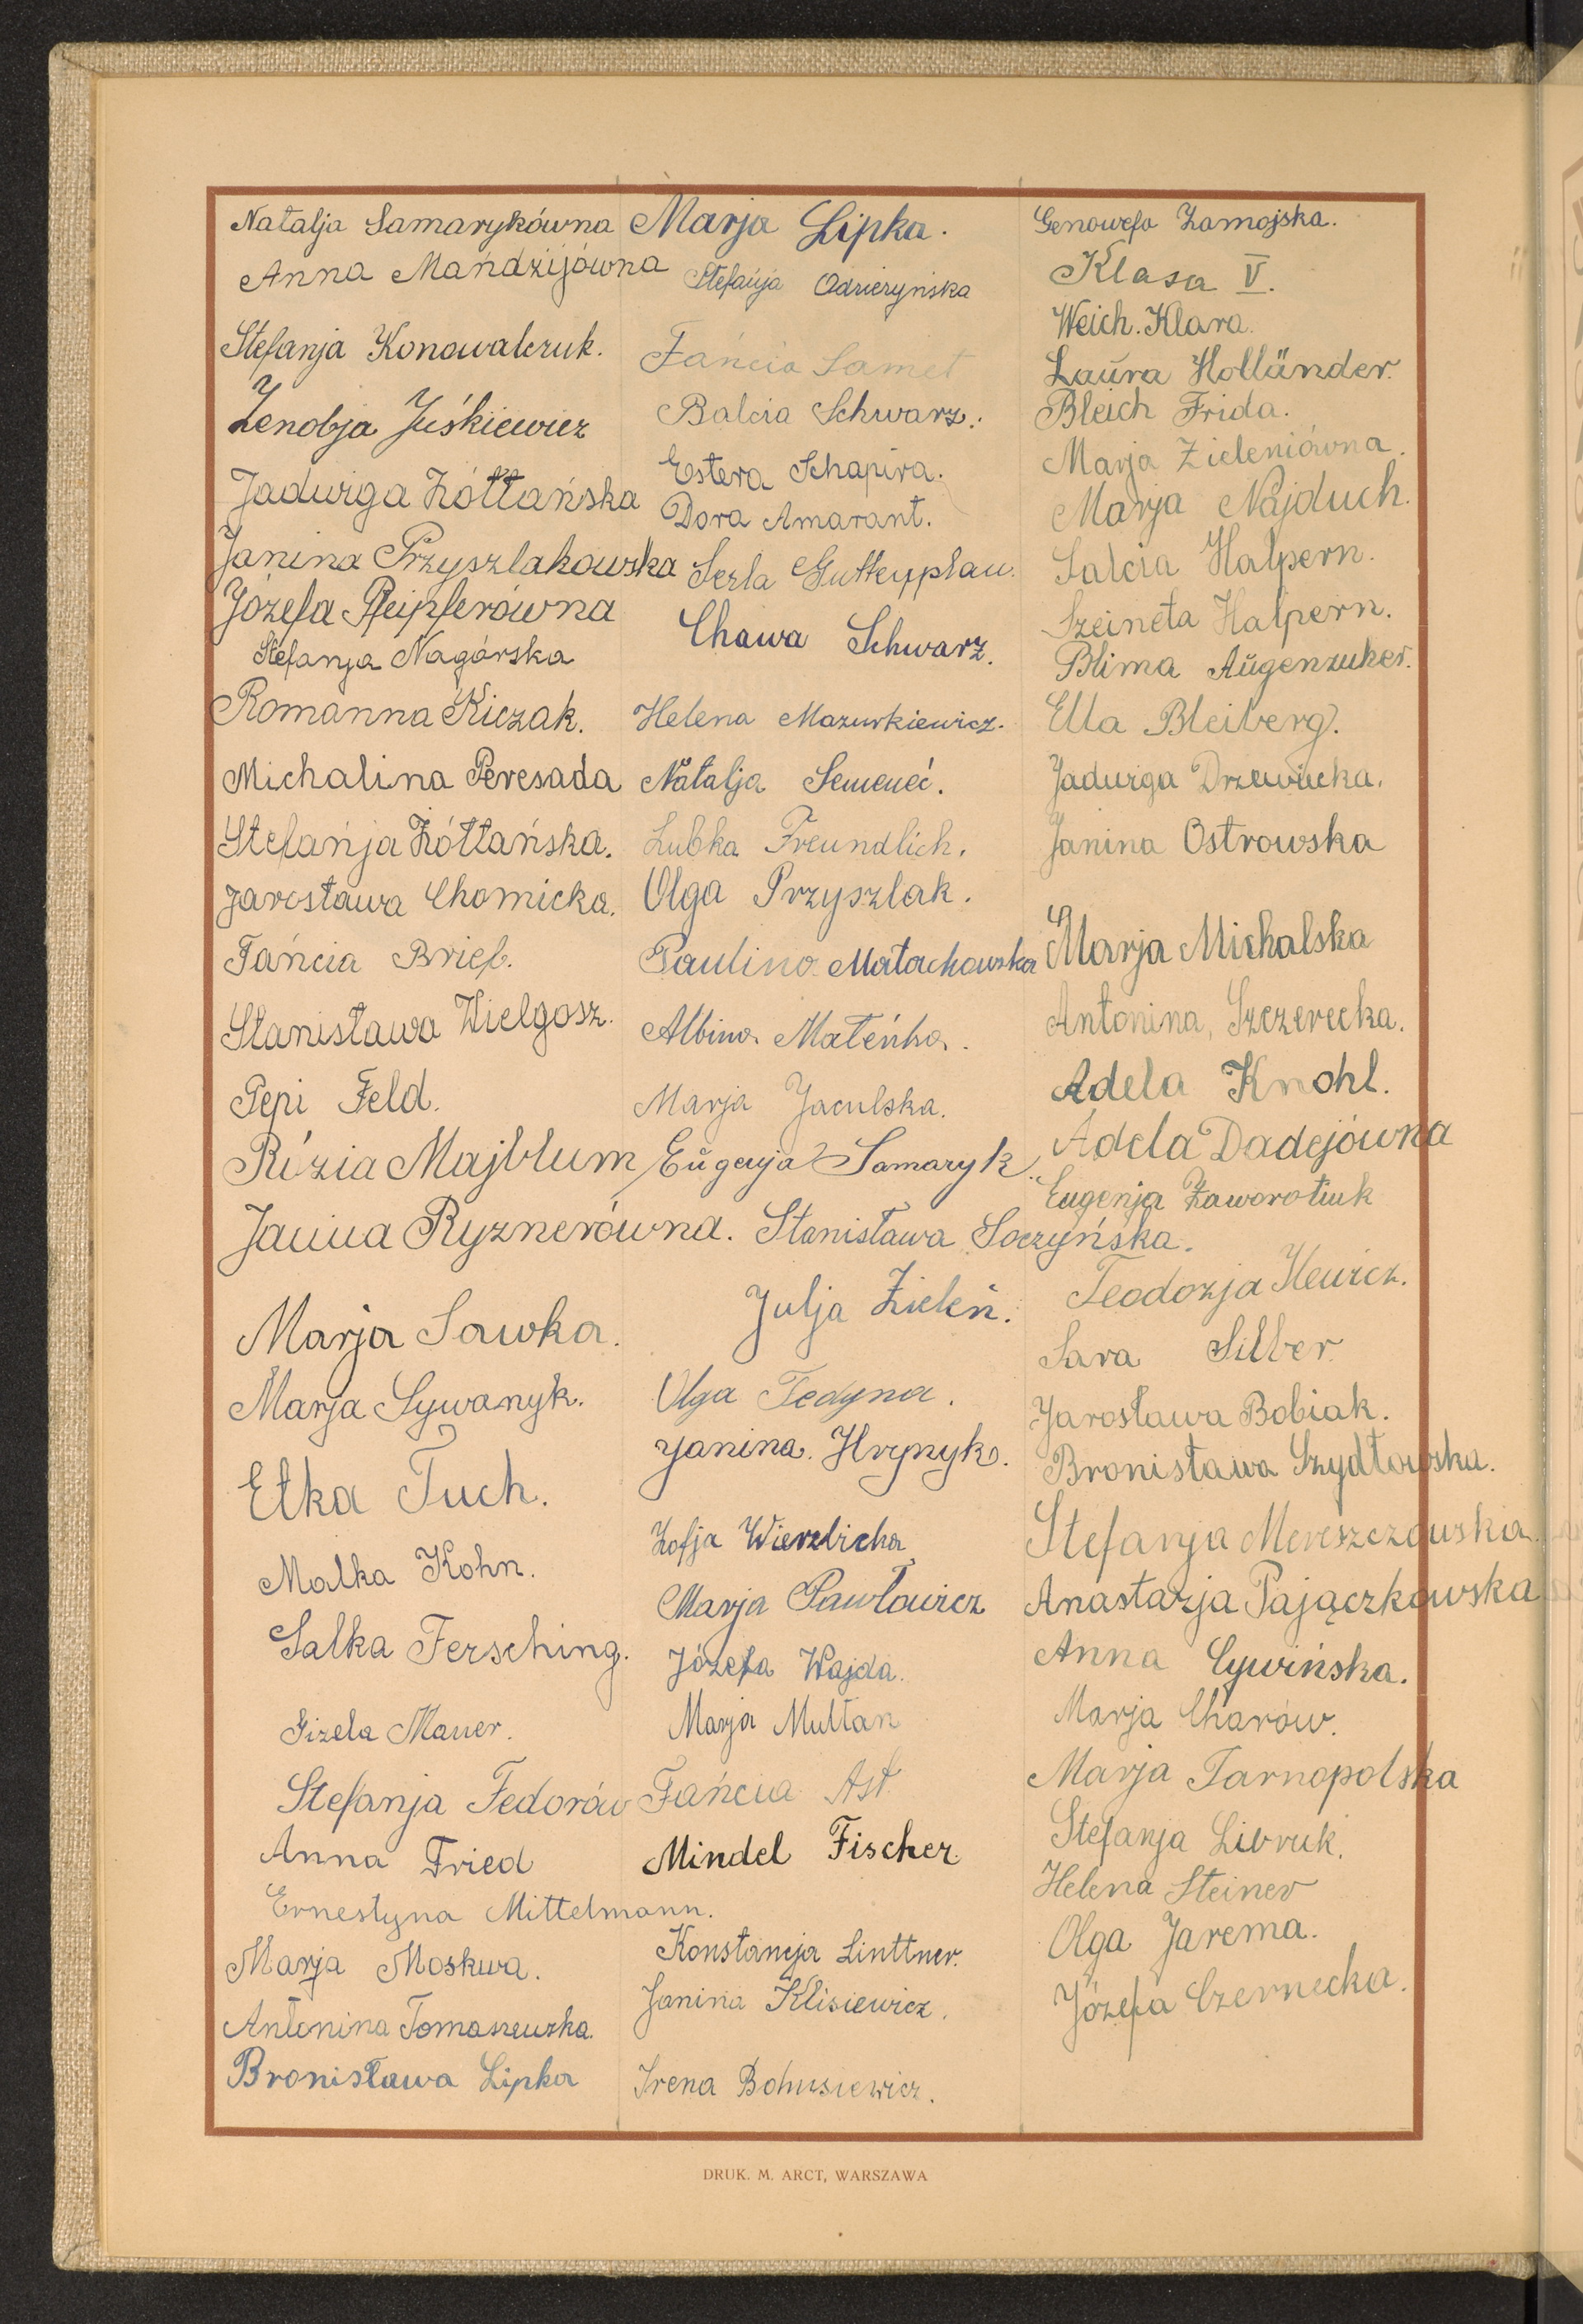 Natalja Samarykówna
Anna Mandzijówna
Stefanja Konowalczuk.
Zenobja Juśkiewicz
Jadwiga Żółtańska
Janina Przyszlakowska
Józefa Pfeipferówna
Stefanja Nagórska
Romanna Kiczak.
Michalina Peresada
Stefańja Żółtańska.
Jarosława Chomicka.
Fańcia Brief.
Stanisława Wielgosz.
Pepi Feld.
Rózia Majblum
Janina Ryznerówna.
Marja Sawka.
Marja Sywanyk.
Etka Tuch.
Malka Kohn.
Salka Fersching.
Gizela Mauer.
Stefanja Fedorów
Anna Fried
Ernestyna Mittelmann.
Marja Moskwa.
Antonina Tomaszewska.
Bronisława Lipka
Marja Lipka.
Stefanja Odzieżyńska
Fańcia Samet
Balcia Schwarz.
Estera Schapira.
Dora Amarant.
Serla
Chawa Schwarz.
Helena Mazurkiewicz.
Natalja Semeneć.
Lubka Freundlich.
Olga Przyszlak.
Paulina Małachowska
Albina Mateńka.
Marja Jaculska.
Eugenja Samaryk.
Stanisława Soczyńska.
Julja Zieleń.
Olga Fedyna.
Janina. Hrynyk.
Zofja Wierzbicka
Marja Pawłowicz
Józefa Wajda.
Marja Multan
Fańcia Ast.
Mindel Fischer.
Konstancja Linttner.
Janina Klisiewicz.
Irena Bohusiewicz.
Genowefa Zamojska.
Klasa V.
Weich. Klara.
Laura Holländer.
Bleich Frida.
Marja Zieleniówna.
Marja Najduch.
Salcia Halpern.
Szeineta Halpern.
Blima Augenzuker.
Ella Bleiberg.
Jadwiga Drzewiecka.
Janina Ostrowska
Marja Michalska
Antonina, Szczerecka.
Adela Knohl.
Adela Dadejówna
Eugenja Zaworotiuk
Teodozja Hewicz.
Sara Silber.
Jarosława Bobiak.
Bronisława Szydłowska.
Stefanja Mereszczowska.
Anastazja Pajączkowska
Anna Cywińska.
Marja Charów.
Marja Tarnopolska
Stefanja Libruk.
Helena Steiner
Olga Jarema.
Józefa Czernecka.
DRUK. M. ARCT, WARSZAWA